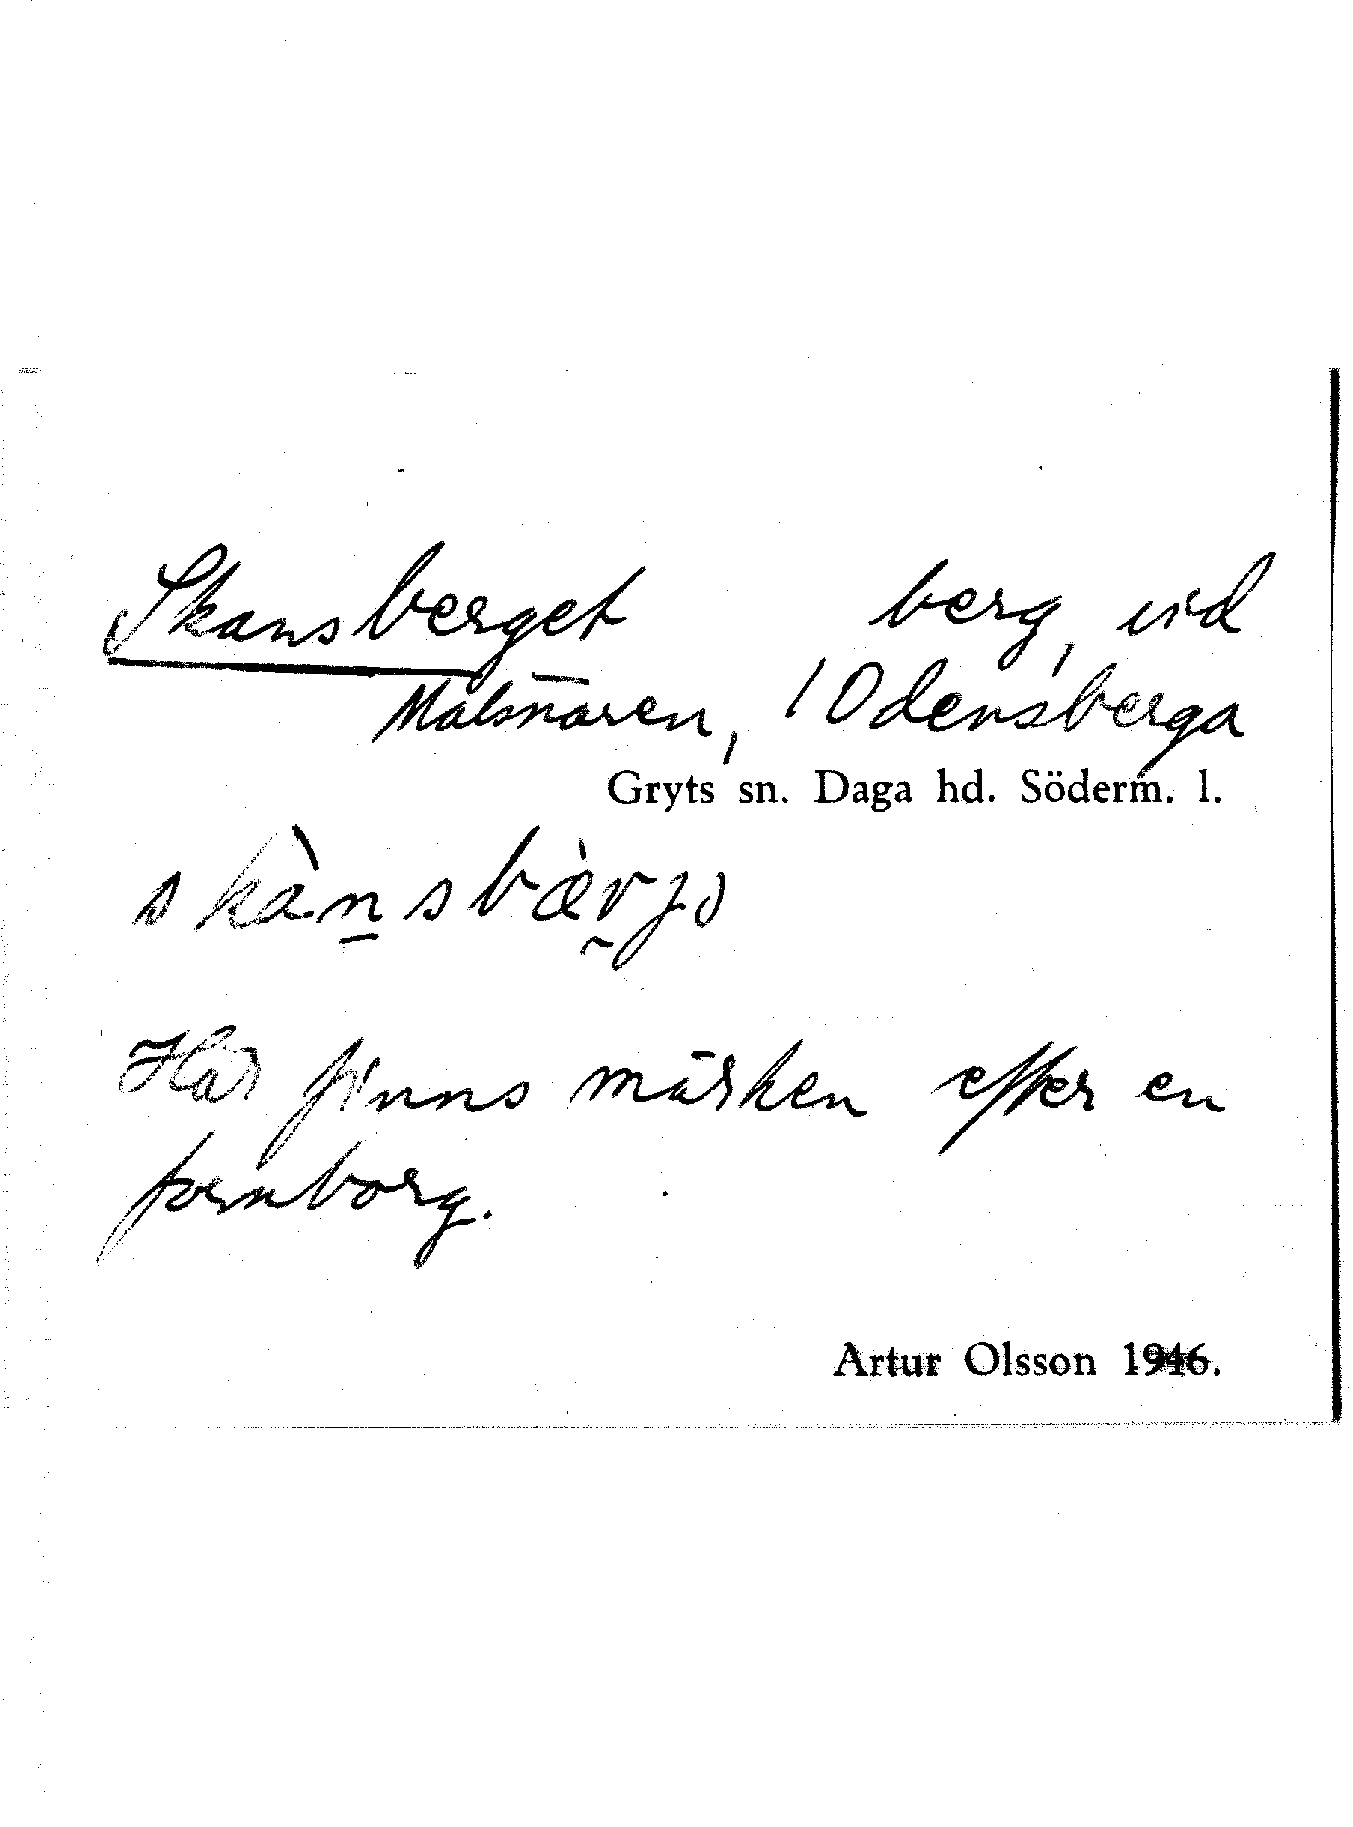 Skansberget berg, vid
Malsnaren, 1 Odensberga
Gryts sn. Daga hd. Söderm. l.
skànsbæ̀rjə
Här finns märken efter en
fornborg.
Artur Olsson 1946.